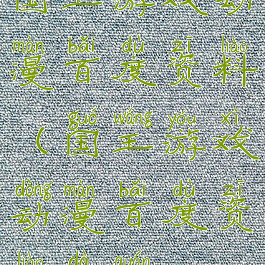 国王游戏动
màn bǎi dù zī liào
漫百度资料
guó wáng yóu xì
（国王游戏
dòng màn bǎi dù zī
动漫百度资